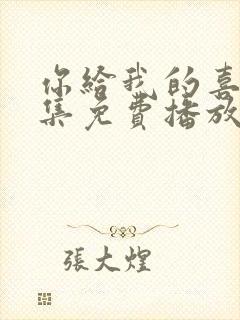 你給我的喜
集免費播放
張大煌